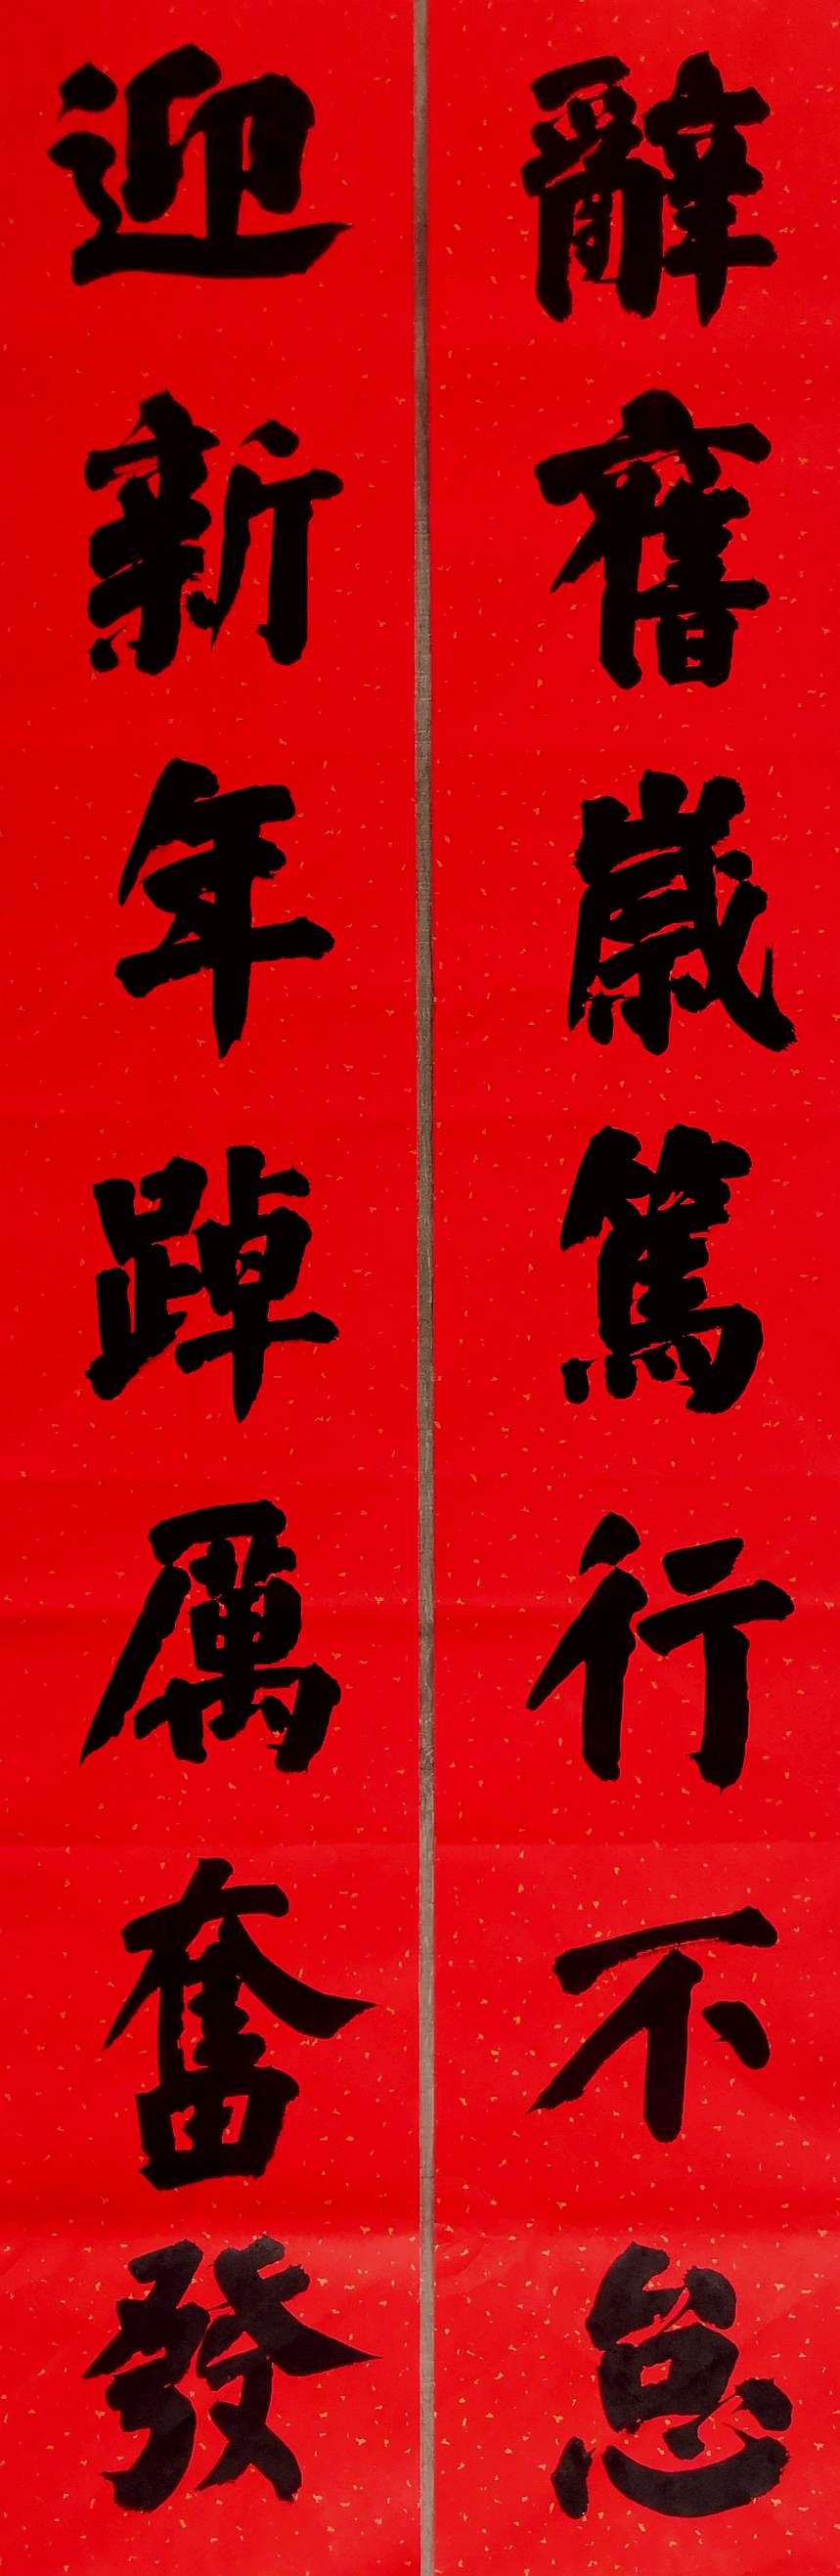 辭舊歲篤行不怠
迎新年踔厲奮發